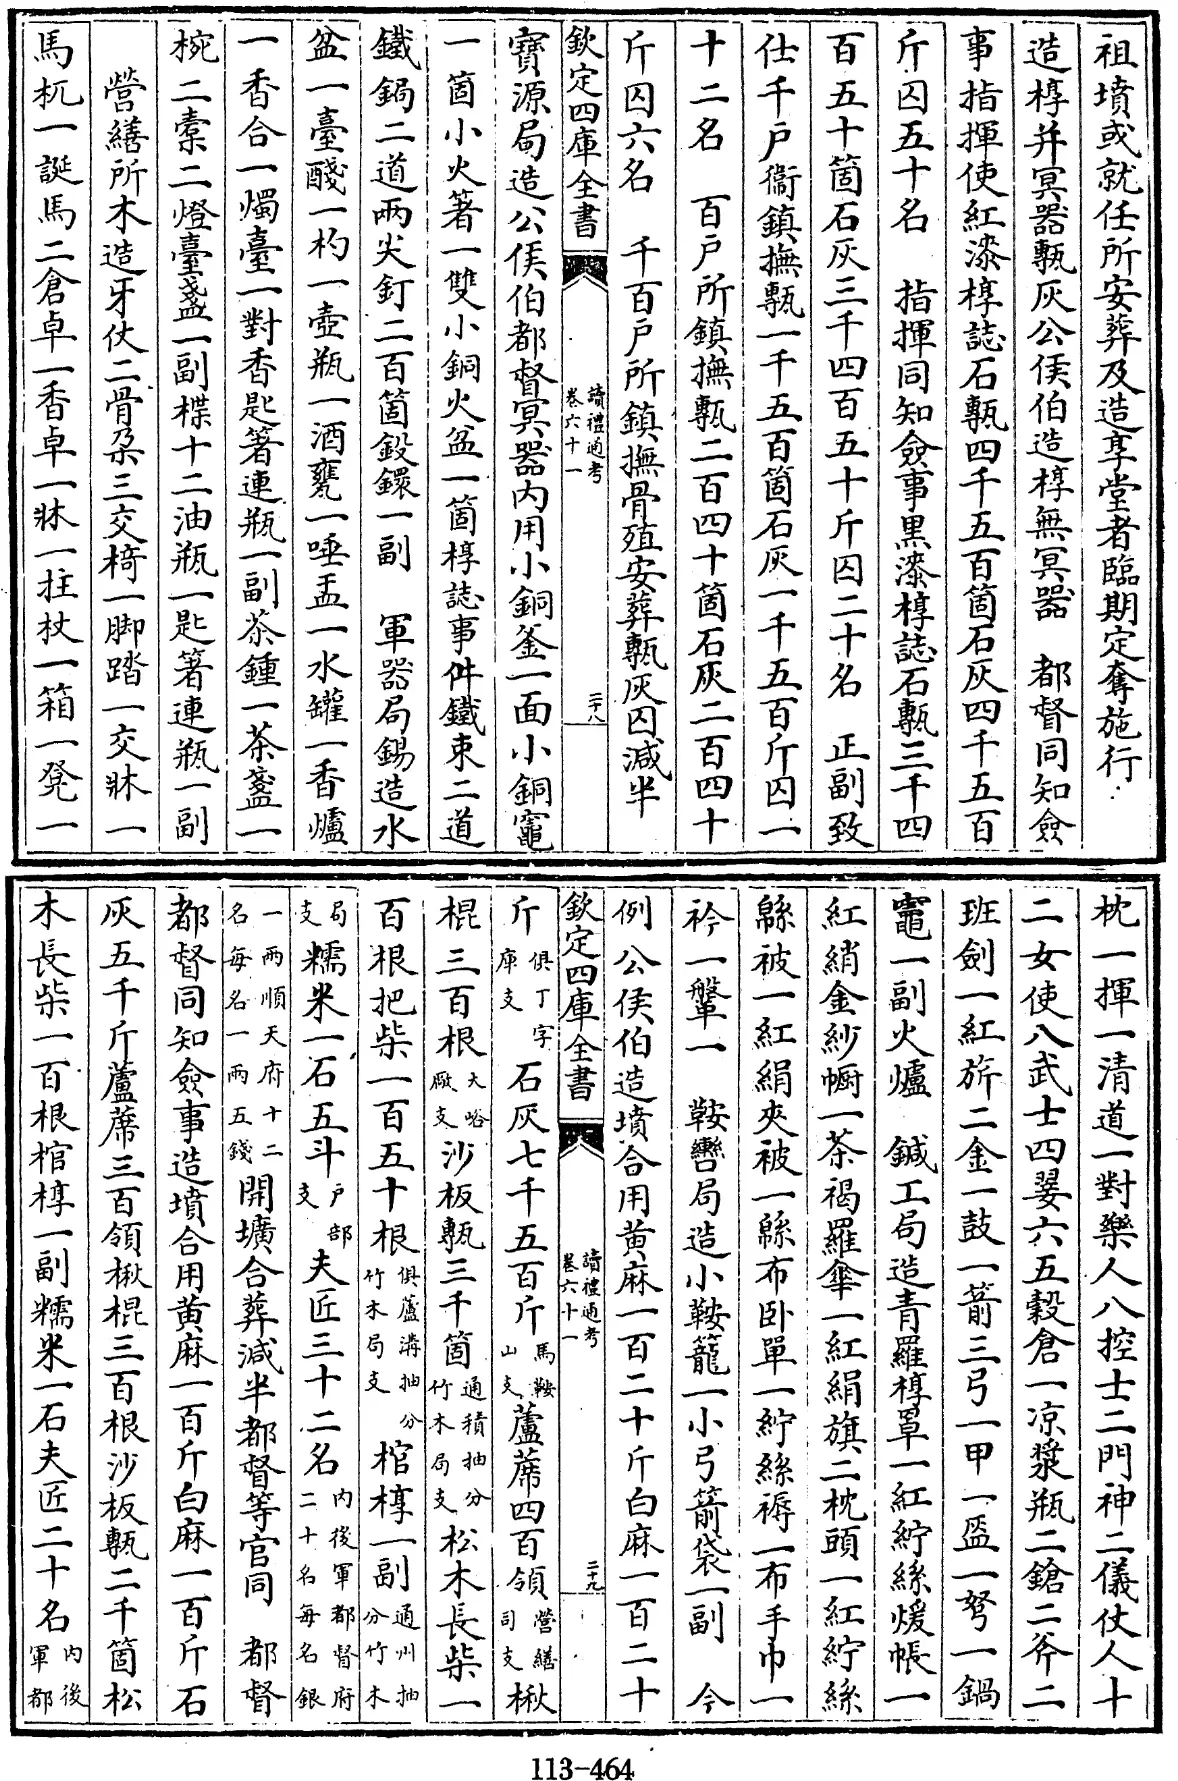 祖墳或就任所安葬及造享堂者臨期定奪施行
造椁并冥器甎灰公侯伯造椁無冥器　都督同知僉
事指揮使紅漆椁誌石甎四千五百箇石灰四千五百
斤囚五十名　指揮同知僉事黒漆椁誌石甎三千四
百五十箇石灰三千四百五十斤囚二十名　正副致
仕千戸衞鎮撫甎一千五百箇石灰一千五百斤囚一
十二名　百戸所鎮撫甎二百四十箇石灰二百四十
斤囚六名　千百戸所鎮撫骨殖安葬甎灰囚減半
欽定四庫全書　讀禮通考 卷六十一　二十八
寶源局造公侯伯都督冥器内用小銅釜一面小銅竈
一箇小火著一雙小銅火盆一箇椁誌事件鐵束二道
鐵鍋二道兩尖釘二百箇鈒鐶一副　軍器局錫造水
盆一臺醆一杓一壺瓶一酒甕一唾盂一水罐一香爐
一香合一燭臺一對香匙著連瓶一副茶鍾一茶盞一
椀二橐二燈臺盞一副楪十二油瓶一匙著連瓶一副
營繕所木造牙仗二骨朶三交椅一脚踏一交牀一
馬杌一誕馬二倉卓一香卓一牀一拄杖一箱一凳一
枕一揮一清道一對樂人八控士二門神二儀仗人十
二女使八武士四翣六五穀倉一凉漿瓶二鎗二斧二
班劍一紅旂二金一鼓一箭三弓一甲一盔一弩一鍋
竈一副火爐　鍼工局造青羅椁罩一紅紵絲煖帳一
紅綃金紗㡡一茶褐羅傘一紅絹旗二枕頭一紅紵絲
緜被一紅絹夾被一緜布卧單一紵絲褥一布手巾一
衿一鞶一　鞍轡局造小鞍籠一小弓箭袋一副　今
例公侯伯造墳合用黄麻一百二十斤白麻一百二十
欽定四庫全書　讀禮通考 卷六十一　二十九
斤俱丁字庫支石灰七千五百斤馬鞍山支蘆蓆四百領營繕司支楸
棍三百根大峪厰支沙板甎三千箇通積抽分竹木局支松木長柴一
百根把柴一百五十根俱蘆溝抽分竹木局支棺椁一副通州抽分竹木
局支糯米一石五斗戸部支夫匠三十二名内後軍都督府二十名每名銀
一兩順天府十二名每名一兩五錢開壙合葬減半都督等官同　都督
都督同知僉事造墳合用黄麻一百斤白麻一百斤石
灰五千斤蘆蓆三百領楸棍三百根沙板甎二千箇松
木長柴一百根棺椁一副糯米一石夫匠二十名内後軍都
113-464